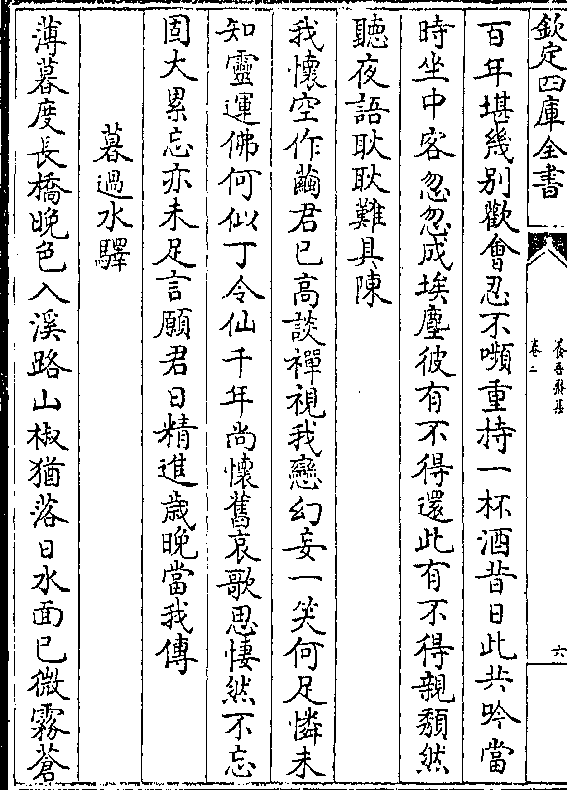 欽定四庫全書
養吾齋集
卷二
六
百年堪幾别歡會忍不嚬重持一杯酒昔日此共吟當
時坐中客忽忽成埃塵彼有不得還此有不得親頽然
聽夜語耿耿難具陳
我懷空作繭君已高談禪視我戀幻妄一笑何足憐未
知靈運佛何似丁令仙千年尚懷舊哀歌思悽然不忘
固大累忘亦未足言願君日精進歲晩當我傳
暮過水驛
薄暮度長橋晩色入溪路山椒猶落日水面已微霧蒼